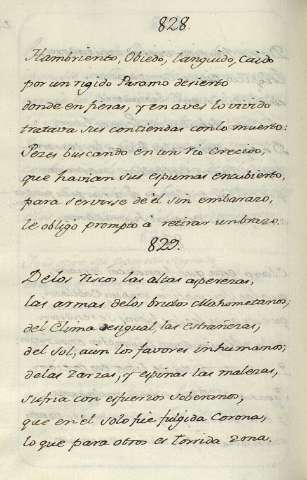 828.
Hambriento, Obiedo, languido, Caido
por un rigido Paramo desierto
donde en fieras, y en aves lo vivido
tratava sus contiendas con lo muerto:
Pezes buscando en un rio Crecido,
que havian sus espumas encubierto,
para servirse de él sin embarazo,
le obligó prompto à retirar un brazo.
829.
De los riscos las altas asperezas,
las armas de los brutos Mahometanos;
del Clima desigual, las estrañezas,
del Sol, aun los favores inhumanos;
de las Zarzas, y espinas las malezas,
sufria con esfuerzos soberanos,
que en él solo fue fulgida Corona,
lo que para otros es Torrida zona.